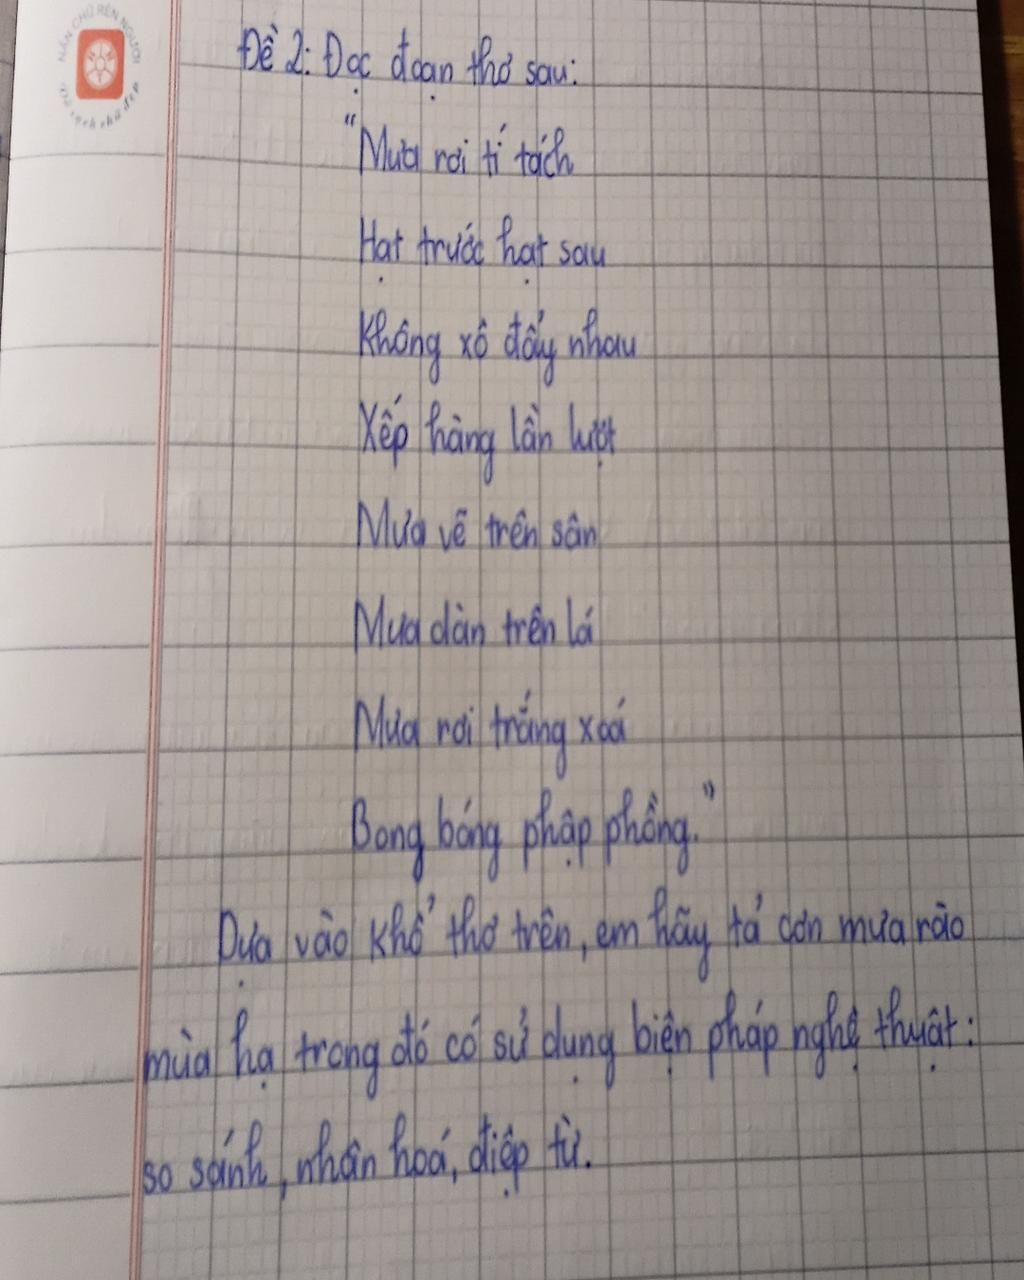 NẮN CHỮ RÈN NGƯỜI
Đề 2: Đọc đoạn thơ sau:
"Mưa rơi tí tách
Hạt trước hạt sau
Không xô đẩy nhau
Xếp hàng lần lượt
Mưa vẽ trên sân
Mưa dàn trên lá
Mưa rơi trắng xoá
Bong bóng phập phồng."
Dựa vào khổ thơ trên, em hãy tả cơn mưa rào
mùa hạ trong đó có sử dụng biện pháp nghệ thuật:
so sánh, nhân hoá, điệp từ.